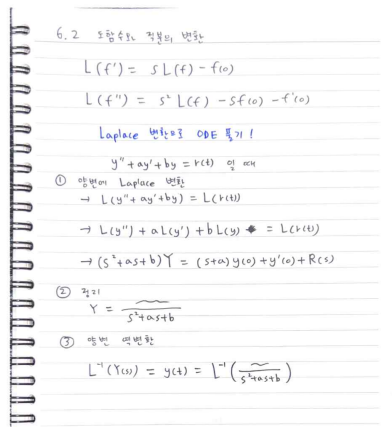 6.2 도함수와 적분의 변환
L(f') = sL(f) - f(0)
L(f'') = s² L(f) - sf(0) - f'(0)
Laplace 변환으로 ODE 풀기!
y'' + ay' + by = r(t) 일 때
① 양변에 Laplace 변환
→ L(y'' + ay' + by) = L(r(t))
→ L(y'') + aL(y') + bL(y) = L(r(t))
→ (s² + as + b)Y = (s+a)y(0) + y'(0) + R(s)
② 정리
Y = ~/(s²+as+b)
③ 양변 역변환
L⁻¹(Y(s)) = y(t) = L⁻¹(~/(s²+as+b))